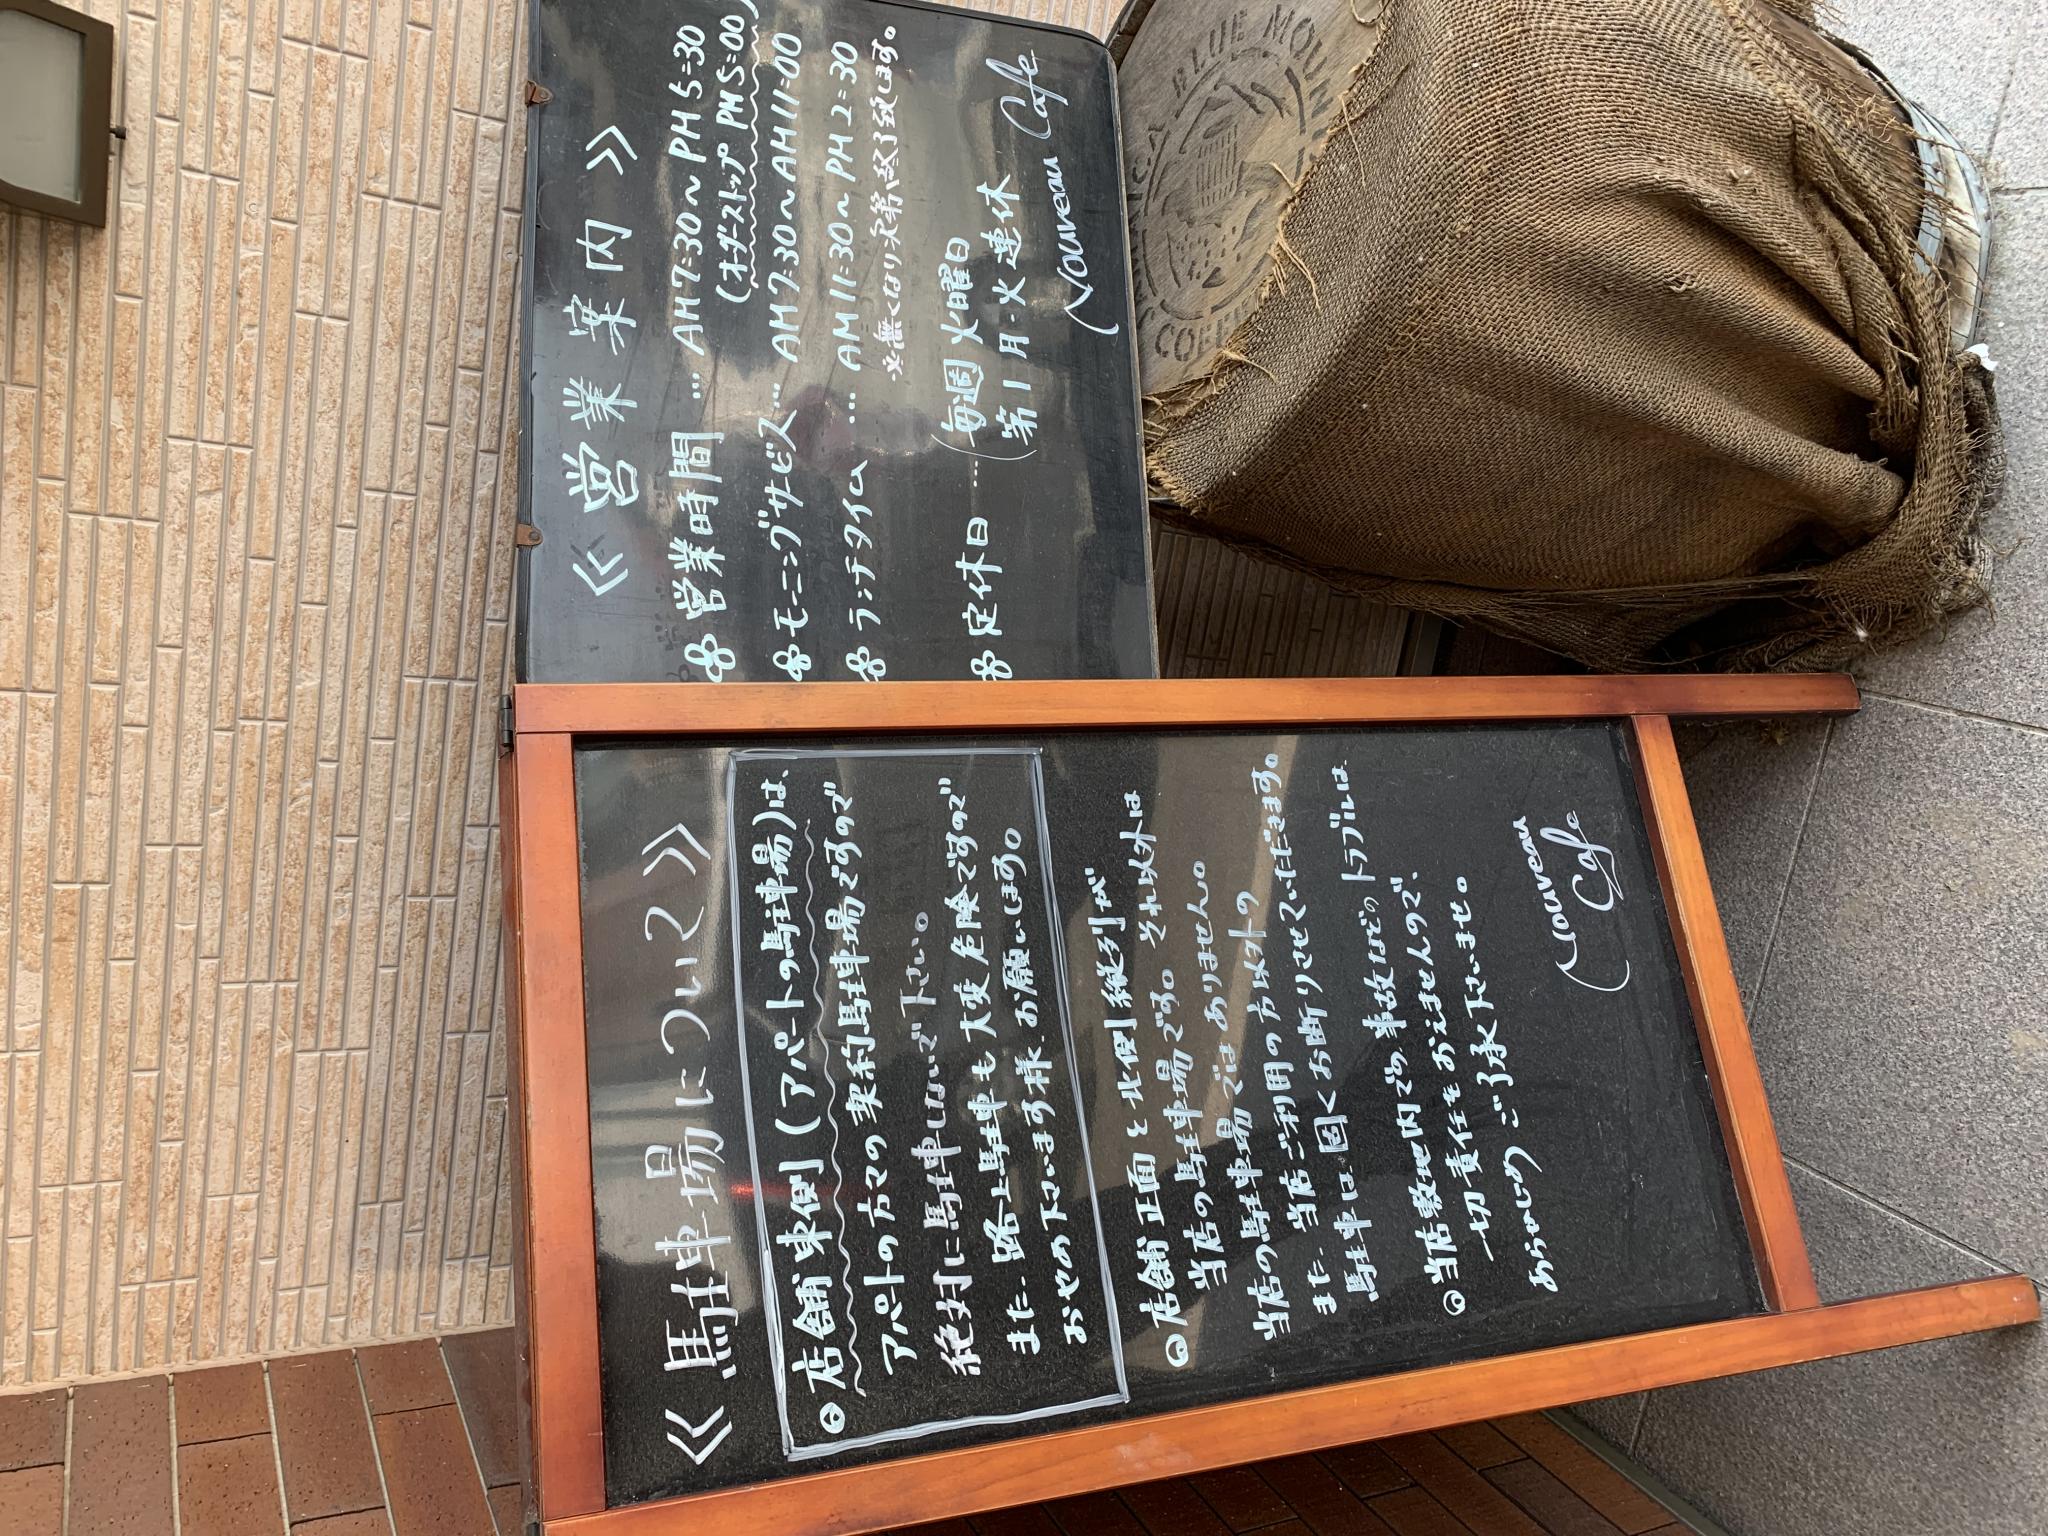 《 駐車場について 》
店舗東側(アパートの駐車場)は、
アパートの方々の契約駐車場ですので
絶対に駐車しないで下さい。
また、路上駐車も大変危険ですので
おやめ下さいます様、お願いします。
店舗正面と北側縦列が
当店の駐車場です。それ以外は
当店の駐車場ではありません。
また、当店ご利用の方以外の
駐車は固くお断りさせていただきます。
当店敷地内での事故などのトラブルは、
一切責任をおえませんので、
あらかじめ ご了承下さいませ。
Nouveau
Cafe
《 営業案内 》
営業時間 … AM7:30〜PM5:30
(オーダーストップ PM5:00)
モーニングサービス … AM7:30〜AM11:00
ランチタイム … AM11:30〜PM2:30
※無くなり次第、終了致します。
定休日 … 毎週火曜日
第1月・火連休
Nouveau Cafe
BLUE MOUN
COFFE